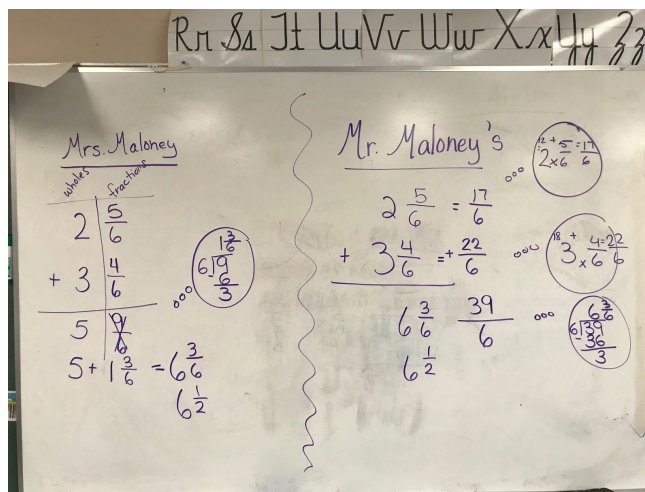 Rr Ss Tt Uu Vv Ww Xx Yy Zz
Mrs. Maloney
wholes fractions
2 5/6
+ 3 4/6
5 9/6
5 + 1 3/6 = 6 3/6
6 1/2
1 3/6
6)9
6
3
Mr. Maloney's
2 5/6 = 17/6
+ 3 4/6 = + 22/6
6 3/6 39/6
6 1/2
12 + 5 = 17
2 x 6 6
18 + 4 = 22
3 x 6 6
6 3/6
6)39
- 36
3